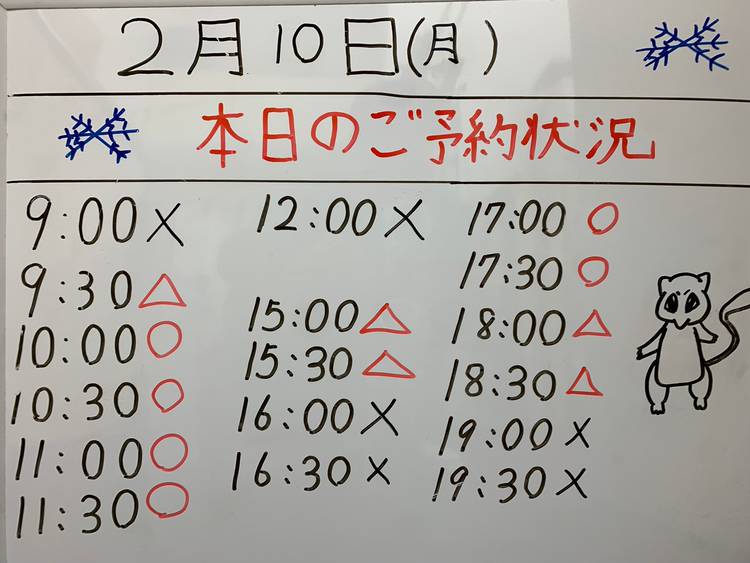 2月10日(月)
本日のご予約状況
9:00×
9:30△
10:00○
10:30○
11:00○
11:30○
12:00×
15:00△
15:30△
16:00×
16:30×
17:00○
17:30○
18:00△
18:30△
19:00×
19:30×